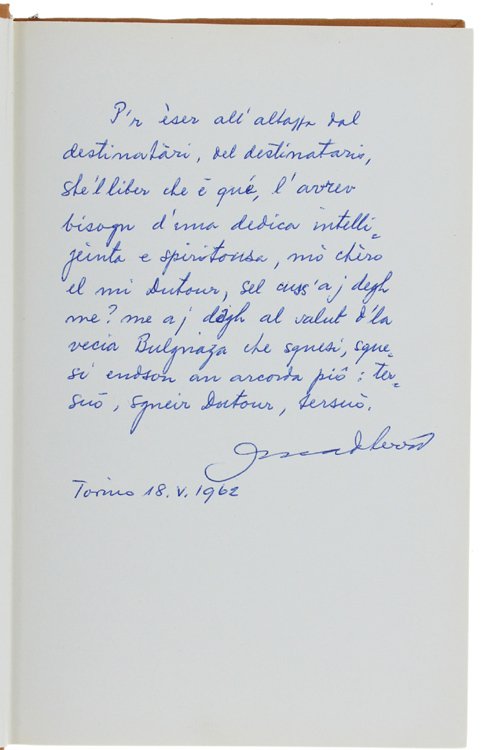 P'r èser all'altazza dal
destinatàri, del destinatario,
ste'l liber che è qué, l'avrev
bisogn d'una dedica intelli=
jèinta e spiritousa, mò chèro
el mi Dutour, sel cuss'a j degh
me? me a j dègh al salut d'la
vecia Bulgnaza che sgnesi, sgne=
si endson an arcorda piô: ter=
suô, sgneir Dutour, tersuô.
Torino 18.V.1962